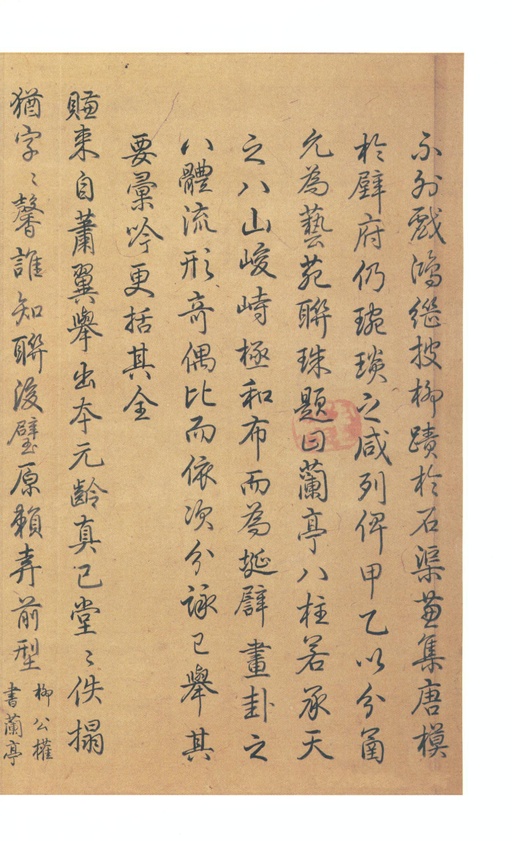 不外戲鴻繼披柳蹟於石渠兼集唐模
於璧府仍琬琰之咸列俾甲乙以分函
允為藝苑聯珠題曰蘭亭八柱若承天
之八山峻峙極和布而為埏譬畫卦之
八體流形奇偶比而依次分詠已舉其
要彙吟更括其全
賺來自蕭翼舉出本元齡真已堂〻佚搨
猶字〻馨誰知聯後璧原賴弆前型
柳公權
書蘭亭